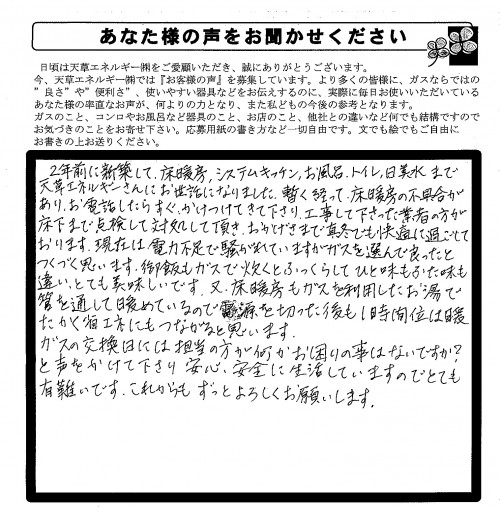 あなた様の声をお聞かせください
日頃は天草エネルギー㈱をご愛顧いただき、誠にありがとうございます。
今、天草エネルギー㈱では『お客様の声』を募集しています。より多くの皆様に、ガスならではの
”良さ”や”便利さ”、使いやすい器具などをお伝えするのに、実際に毎日お使いいただいている
あなた様の率直なお声が、何よりの力となり、また私どもの今後の参考となります。
ガスのこと、コンロやお風呂など器具のこと、お店のこと、他社との違いなど何でも結構ですので
お気づきのことをお寄せ下さい。応募用紙の書き方など一切自由です。文でも絵でもご自由に
お書きの上お送りください。
2年前に新築して、床暖房，システムキッチン，お風呂，トイレ，日美水まで
天草エネルギーさんにお世話になりました。暫く経って、床暖房の不具合が
あり、お電話したらすぐ、かけつけてきて下さり、工事して下さった業者の方が
床下まで点検して対処して頂き、おかげさまで真冬でも快適に過ごして
おります。現在は電力不足で騒がれていますがガスを選んで良かったと
つくづく思います。御飯もガスで炊くとふっくらしてひと味もふた味も
違い、とても美味しいです。又、床暖房もガスを利用したお湯で
管を通して暖めているので電源を切った後も1時間位は暖
たかく省エネにもつながると思います。
ガスの交換日には担当の方が何かお困りの事はないですか？
と声をかけて下さり安心、安全に生活していますのでとても
有難いです。これからもずっとよろしくお願いします。